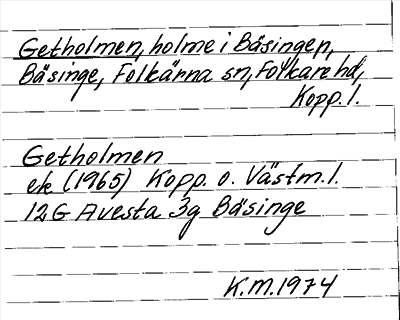 Getholmen, holme i Bäsingen,
Bäsinge, Folkärna sn, Folkare hd,
Kopp. l.
Getholmen
ek (1965) Kopp. o. Västm. l.
12G Avesta 3g Bäsinge
K.M. 1974